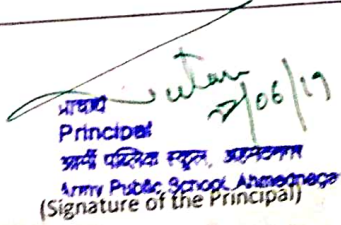 7/06/19
प्राचार्य
Principal
आर्मी पब्लिक स्कूल, अहमदनगर
Army Public School, Ahmednagar
(Signature of the Principal)